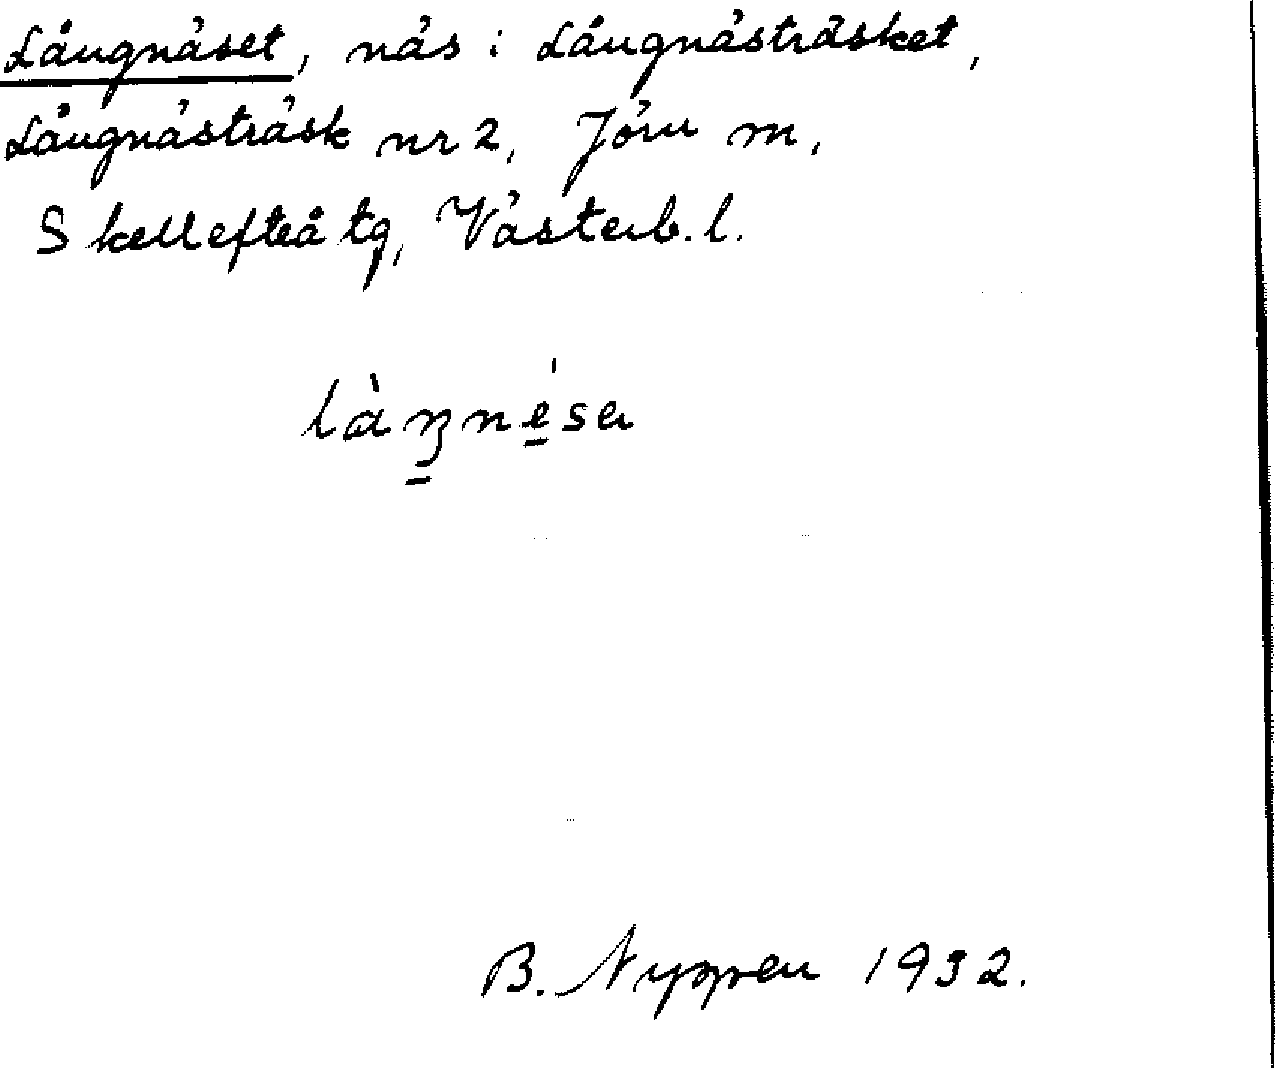 Långnäset, näs i Långnästräsket,
Långnästräsk nr 2, Jörn m,
Skellefteå tg, Västerb. l.
làŋnésɐ
B. Nyppen 1932.